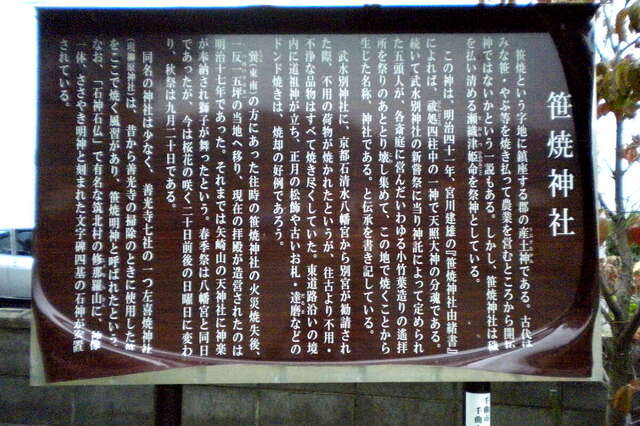 笹焼神社
笹焼という字地に鎮座する郡の産土神である。古代は
みな笹・やぶ等を焼き払って農業を営むところから開拓
神ではないかという一説もある。しかし、笹焼神社は
を払い清める瀬織津姫命を祭神としている。
この神は、明治四十一年、宮川建雄の『笹焼神社由緒書』
によれば、祓処四柱中の一神で天照大神の分魂である。
続いて武水別神社の新嘗祭に当り神託によって定められ
た五頭人が、各斎庭に営んだいわゆる小竹葉造りの遙拝
所を祭りのあととり壊し集めて、この地で焼くことから
生じた名称、神社である。と伝承を書き記している。
武水別神社に、京都石清水八幡宮から別宮が勧請され
た際、不用の荷物が焼かれたというが、往古より不用・
不浄な品物はすべて焼き尽くしていた。東道路沿いの境
内に道祖神が立ち、正月の松飾や古いお札・達磨などの
ドンド焼きは、焼却の好例であろう。
巽(東南)の方にあった往時の笹焼神社の火災焼失後、
一反一五坪の当地へ移り、現在の拝殿が造営されたのは
明治十七年であった。それまでは矢崎山の天神社に神楽
が奉納され獅子が舞ったという。春季祭は八幡宮と同日
であったが、今は桜花の咲く二十日前後の日曜日に変わ
り、秋祭は九月二十日である。
同名の神社は少なく、善光寺七社の一つ左喜焼神社
は、昔から善光寺の掃除のときに使用した
をここで焼く風習があり、笹焼明神と呼ばれたという。
なお、「石神石仏」で有名な筑北村の修那羅山に、
一体、ささやき明神と刻まれた文字碑四基の石神が安置
されている。
千曲